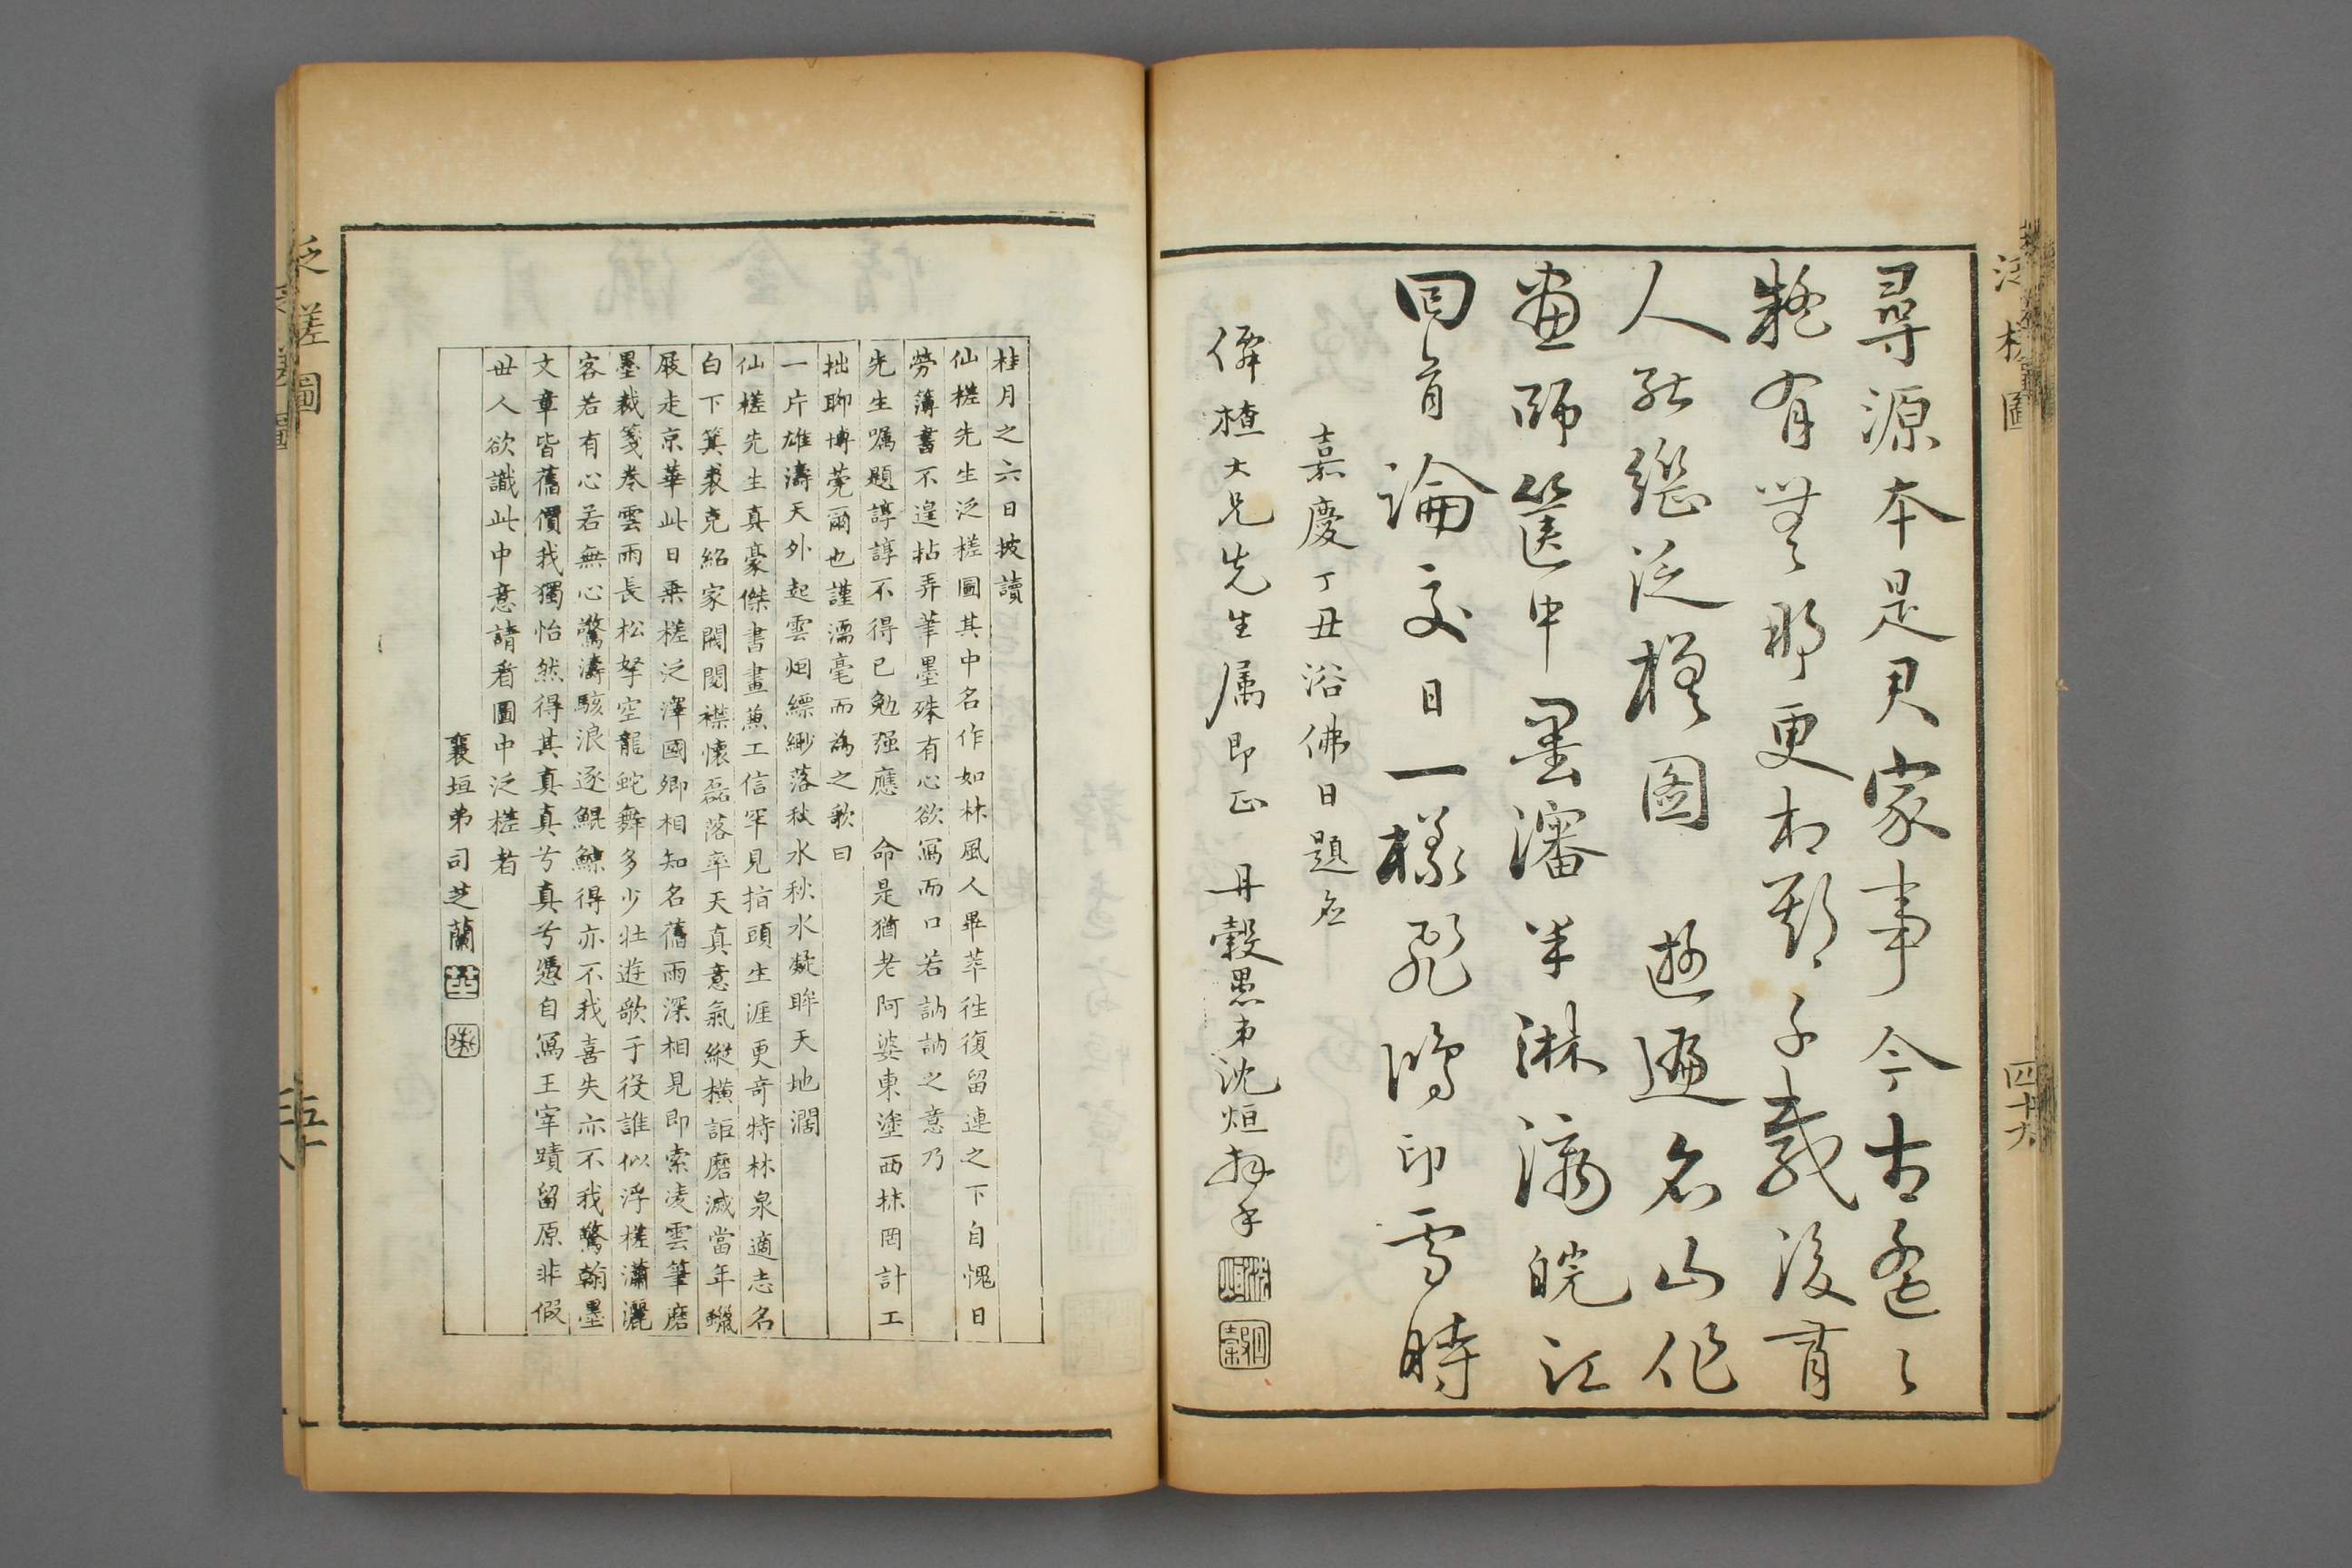 泛槎圖
四十九
尋源本是君家事今古遙遙
疑有無那更相期千載後有
人能繼泛槎圖 遊遍名山作
畫師篋中墨瀋半淋漓皖江
回首論交日一樣飛鴻印雪時
嘉慶丁丑浴佛日題應
仙槎大兄先生属即正 丹穀愚弟沈烜拜手
桂月之六日披讀
仙槎先生泛槎圖其中名作如林風人畢萃往復留連之下自愧日
勞簿書不遑拈弄筆墨殊有心欲寫而口若訥訥之意乃
先生囑題諄諄不得已勉强應 命是猶老阿婆東塗西抹罔計工
拙聊博莞爾也謹濡毫而為之歌曰
一片雄濤天外起雲烟縹緲落秋水秋水凝眸天地濶
仙槎先生真豪傑書畫兼工信罕見指頭生涯更奇特林泉適志名
白下箕裘克紹家閥閱襟懷磊落率天真意氣縱橫詎磨滅當年蠟
屐走京華此日乗槎泛澤國卿相知名舊雨深相見即索凌雲筆磨
墨裁箋卷雲雨長松拏空龍蛇舞多少壯遊歌于役誰似浮槎瀟灑
客若有心若無心驚濤駭浪逐鯤鯨得亦不我喜失亦不我驚翰墨
文章皆舊價我獨怡然得其真真兮真兮憑自寫王宰蹟留原非假
世人欲識此中意請看圖中泛槎者
襄垣弟司芝蘭
泛槎圖
五十